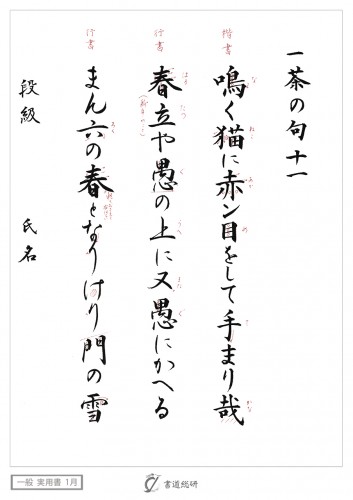 一茶の句 十一
楷書
鳴く猫に赤ン目をして手まり哉
行書
春立や愚の上に又愚にかへる
行書
まん六の春となりけり門の雪
段級 氏名
一般 実用書 1月
書道総研